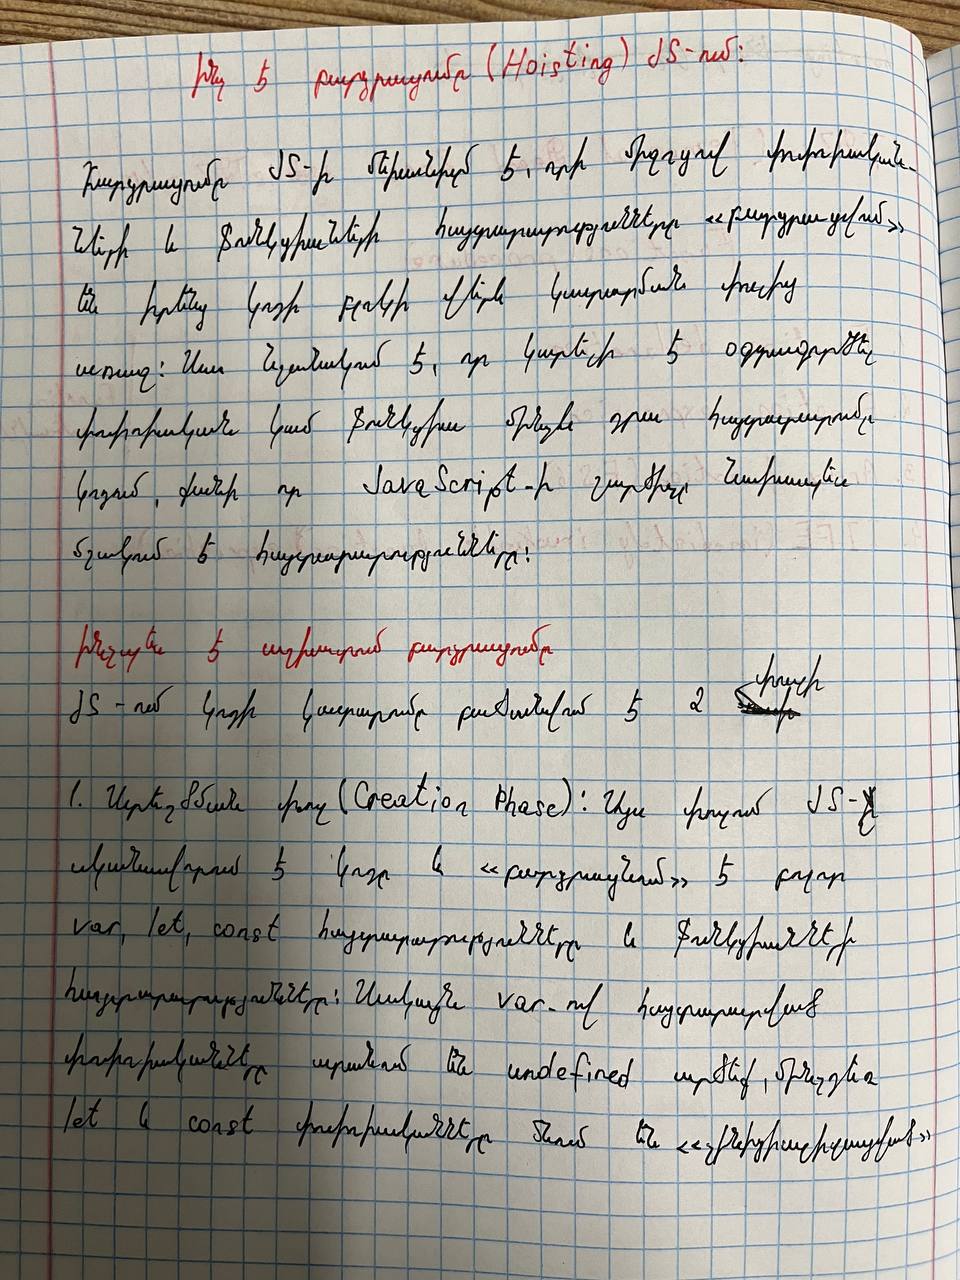 Ինչ է բարձրացումը (Hoisting) JS-ում:
Բարձրացումը JS-ի մեխանիզմ է, որի միջոցով փոփոխական-
ների և ֆունկցիաների հայտարարությունները «բարձրացվում»
են իրենց կոդի բլոկի վերև կատարման փուլից
առաջ: Սա նշանակում է, որ կարելի է օգտագործել
փոփոխական կամ ֆունկցիա մինչև դրա հայտարարումը
կոդում, քանի որ JavaScript-ի շարժիչը նախապես
մշակում է հայտարարությունները:
Ինչպես է աշխատում բարձրացումը
JS-ում կոդի կատարումը բաժանվում է 2 փուլի
1. Ստեղծման փուլ (Creation Phase): Այս փուլում JS-ը
սկանավորում է կոդը և «բարձրացնում» է բոլոր
var, let, const հայտարարությունները և ֆունկցիաների
հայտարարությունները: Սակայն var-ով հայտարարված
փոփոխականները ստանում են undefined արժեք, մինչդեռ
let և const փոփոխականները մնում են «չինիցիալիզացված»